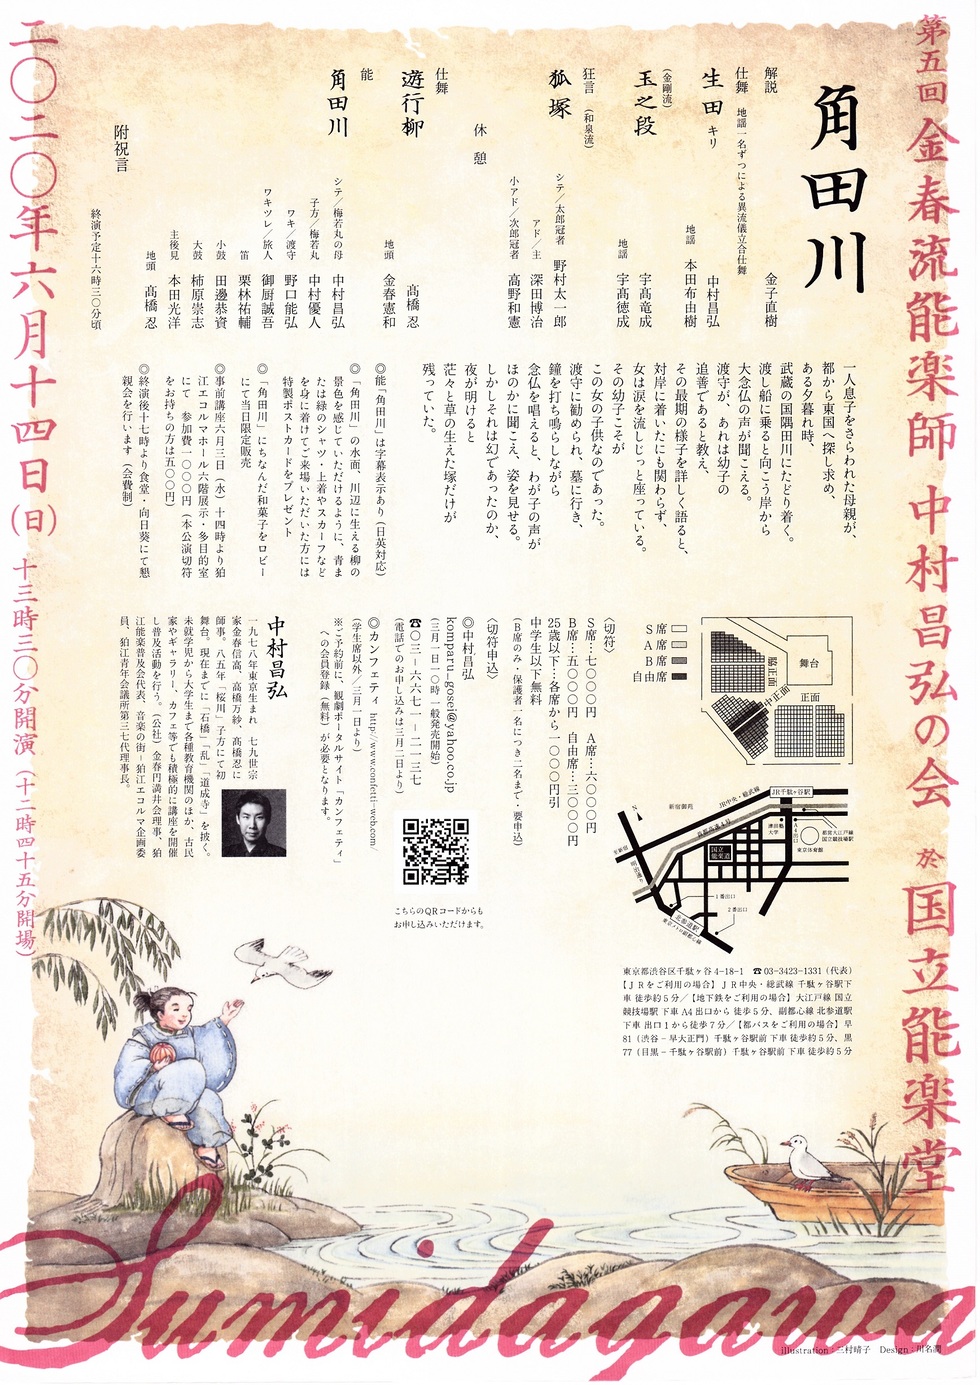 第五回 金春流能楽師 中村昌弘の会 於 国立能楽堂
角田川
解説 金子直樹
仕舞 地謡一名ずつによる異流儀立合仕舞
生田 キリ 中村昌弘
地謡 本田布由樹
(金剛流)
玉之段 宇髙竜成
地謡 宇髙徳成
狂言 (和泉流)
狐塚 シテ/太郎冠者 野村太一郎
アド/主 深田博治
小アド/次郎冠者 高野和憲
休憩
仕舞
遊行柳 髙橋忍
地頭 金春憲和
能
角田川 シテ/梅若丸の母 中村昌弘
子方/梅若丸 中村優人
ワキ/渡守 野口能弘
ワキツレ/旅人 御厨誠吾
笛 栗林祐輔
小鼓 田邊恭資
大鼓 柿原崇志
主後見 本田光洋
地頭 髙橋忍
附祝言
終演予定十六時三〇分頃
一人息子をさらわれた母親が、
都から東国へ探し求め、
ある夕暮れ時、
武蔵の国隅田川にたどり着く。
渡し船に乗ると向こう岸から
大念仏の声が聞こえる。
渡守が、あれは幼子の
追善であると教え、
その最期の様子を詳しく語ると、
対岸に着いたにも関わらず、
女は涙を流しじっと座っている。
その幼子こそが
この女の子供なのであった。
渡守に勧められ、墓に行き、
鐘を打ち鳴らしながら
念仏を唱えると、わが子の声が
ほのかに聞こえ、姿を見せる。
しかしそれは幻であったのか、
夜が明けると
茫々と草の生えた塚だけが
残っていた。
◎能「角田川」は字幕表示あり(日英対応)
◎「角田川」の水面、川辺に生える柳の
景色を感じていただけるように、青ま
たは緑のシャツ・上着やスカーフなど
を身に着けてご来場いただいた方には
特製ポストカードをプレゼント
◎「角田川」にちなんだ和菓子をロビー
にて当日限定販売
◎事前講座六月三日(水)十四時より狛
江エコルマホール六階展示・多目的室
にて 参加費一〇〇〇円(本公演切符
をお持ちの方は五〇〇円)
◎終演後十七時より食堂・向日葵にて懇
親会を行います(会費制)
舞台
正面
中正面
脇正面
S席
A席
B席
自由席
〈切符〉
S席…七〇〇〇円 A席…六〇〇〇円
B席…五〇〇〇円 自由席…三〇〇〇円
25歳以下…各席から一〇〇〇円引
中学生以下無料
(B席のみ・保護者一名につき二名まで・要申込)
〈切符申込〉
◎中村昌弘
komparu_gosei@yahoo.co.jp
(三月一日一〇時 一般発売開始)
☎〇三-六六七一-二一三七
(電話でのお申し込みは三月二日より)
◎カンフェティ http://www.confetti-web.com/
(学生席以外/三月一日より)
※ご予約前に、観劇ポータルサイト「カンフェティ」
への会員登録(無料)が必要となります。
こちらのQRコードからも
お申し込みいただけます。
中村昌弘
一九七八年東京生まれ 七九世宗
家金春信高、高橋万紗、髙橋忍に
師事。八五年「桜川」子方にて初
舞台。現在までに「石橋」「乱」「道成寺」を披く。
未就学児から大学生まで各種教育機関のほか、古民
家やギャラリー、カフェ等でも積極的に講座を開催
し普及活動を行う。(公社)金春円満井会理事、狛
江能楽普及会代表、音楽の街-狛江エコルマ企画委
員、狛江青年会議所第三七代理事長。
N
新宿御苑
JR中央・総武線
JR千駄ヶ谷駅
首都高速4号
至新宿
明治通り
国立
能楽堂
津田塾
大学
A4
出口
都営大江戸線
国立競技場駅
東京体育館
1番出口
2番出口
北参道駅
東京メトロ副都心線
東京都渋谷区千駄ヶ谷 4-18-1 ☎03-3423-1331(代表)
【JRをご利用の場合】JR中央・総武線 千駄ヶ谷駅下
車 徒歩約5分/【地下鉄をご利用の場合】大江戸線 国立
競技場駅 下車 A4出口から 徒歩5分、副都心線 北参道駅
下車 出口1から徒歩7分/【都バスをご利用の場合】早
81(渋谷-早大正門)千駄ヶ谷駅前 下車 徒歩約5分、黒
77(目黒-千駄ヶ谷駅前)千駄ヶ谷駅前 下車 徒歩約5分
二〇二〇年六月十四日(日)十三時三〇分開演(十二時四十五分開場)
Sumidagawa
illustration:三村晴子 Design:川名潤